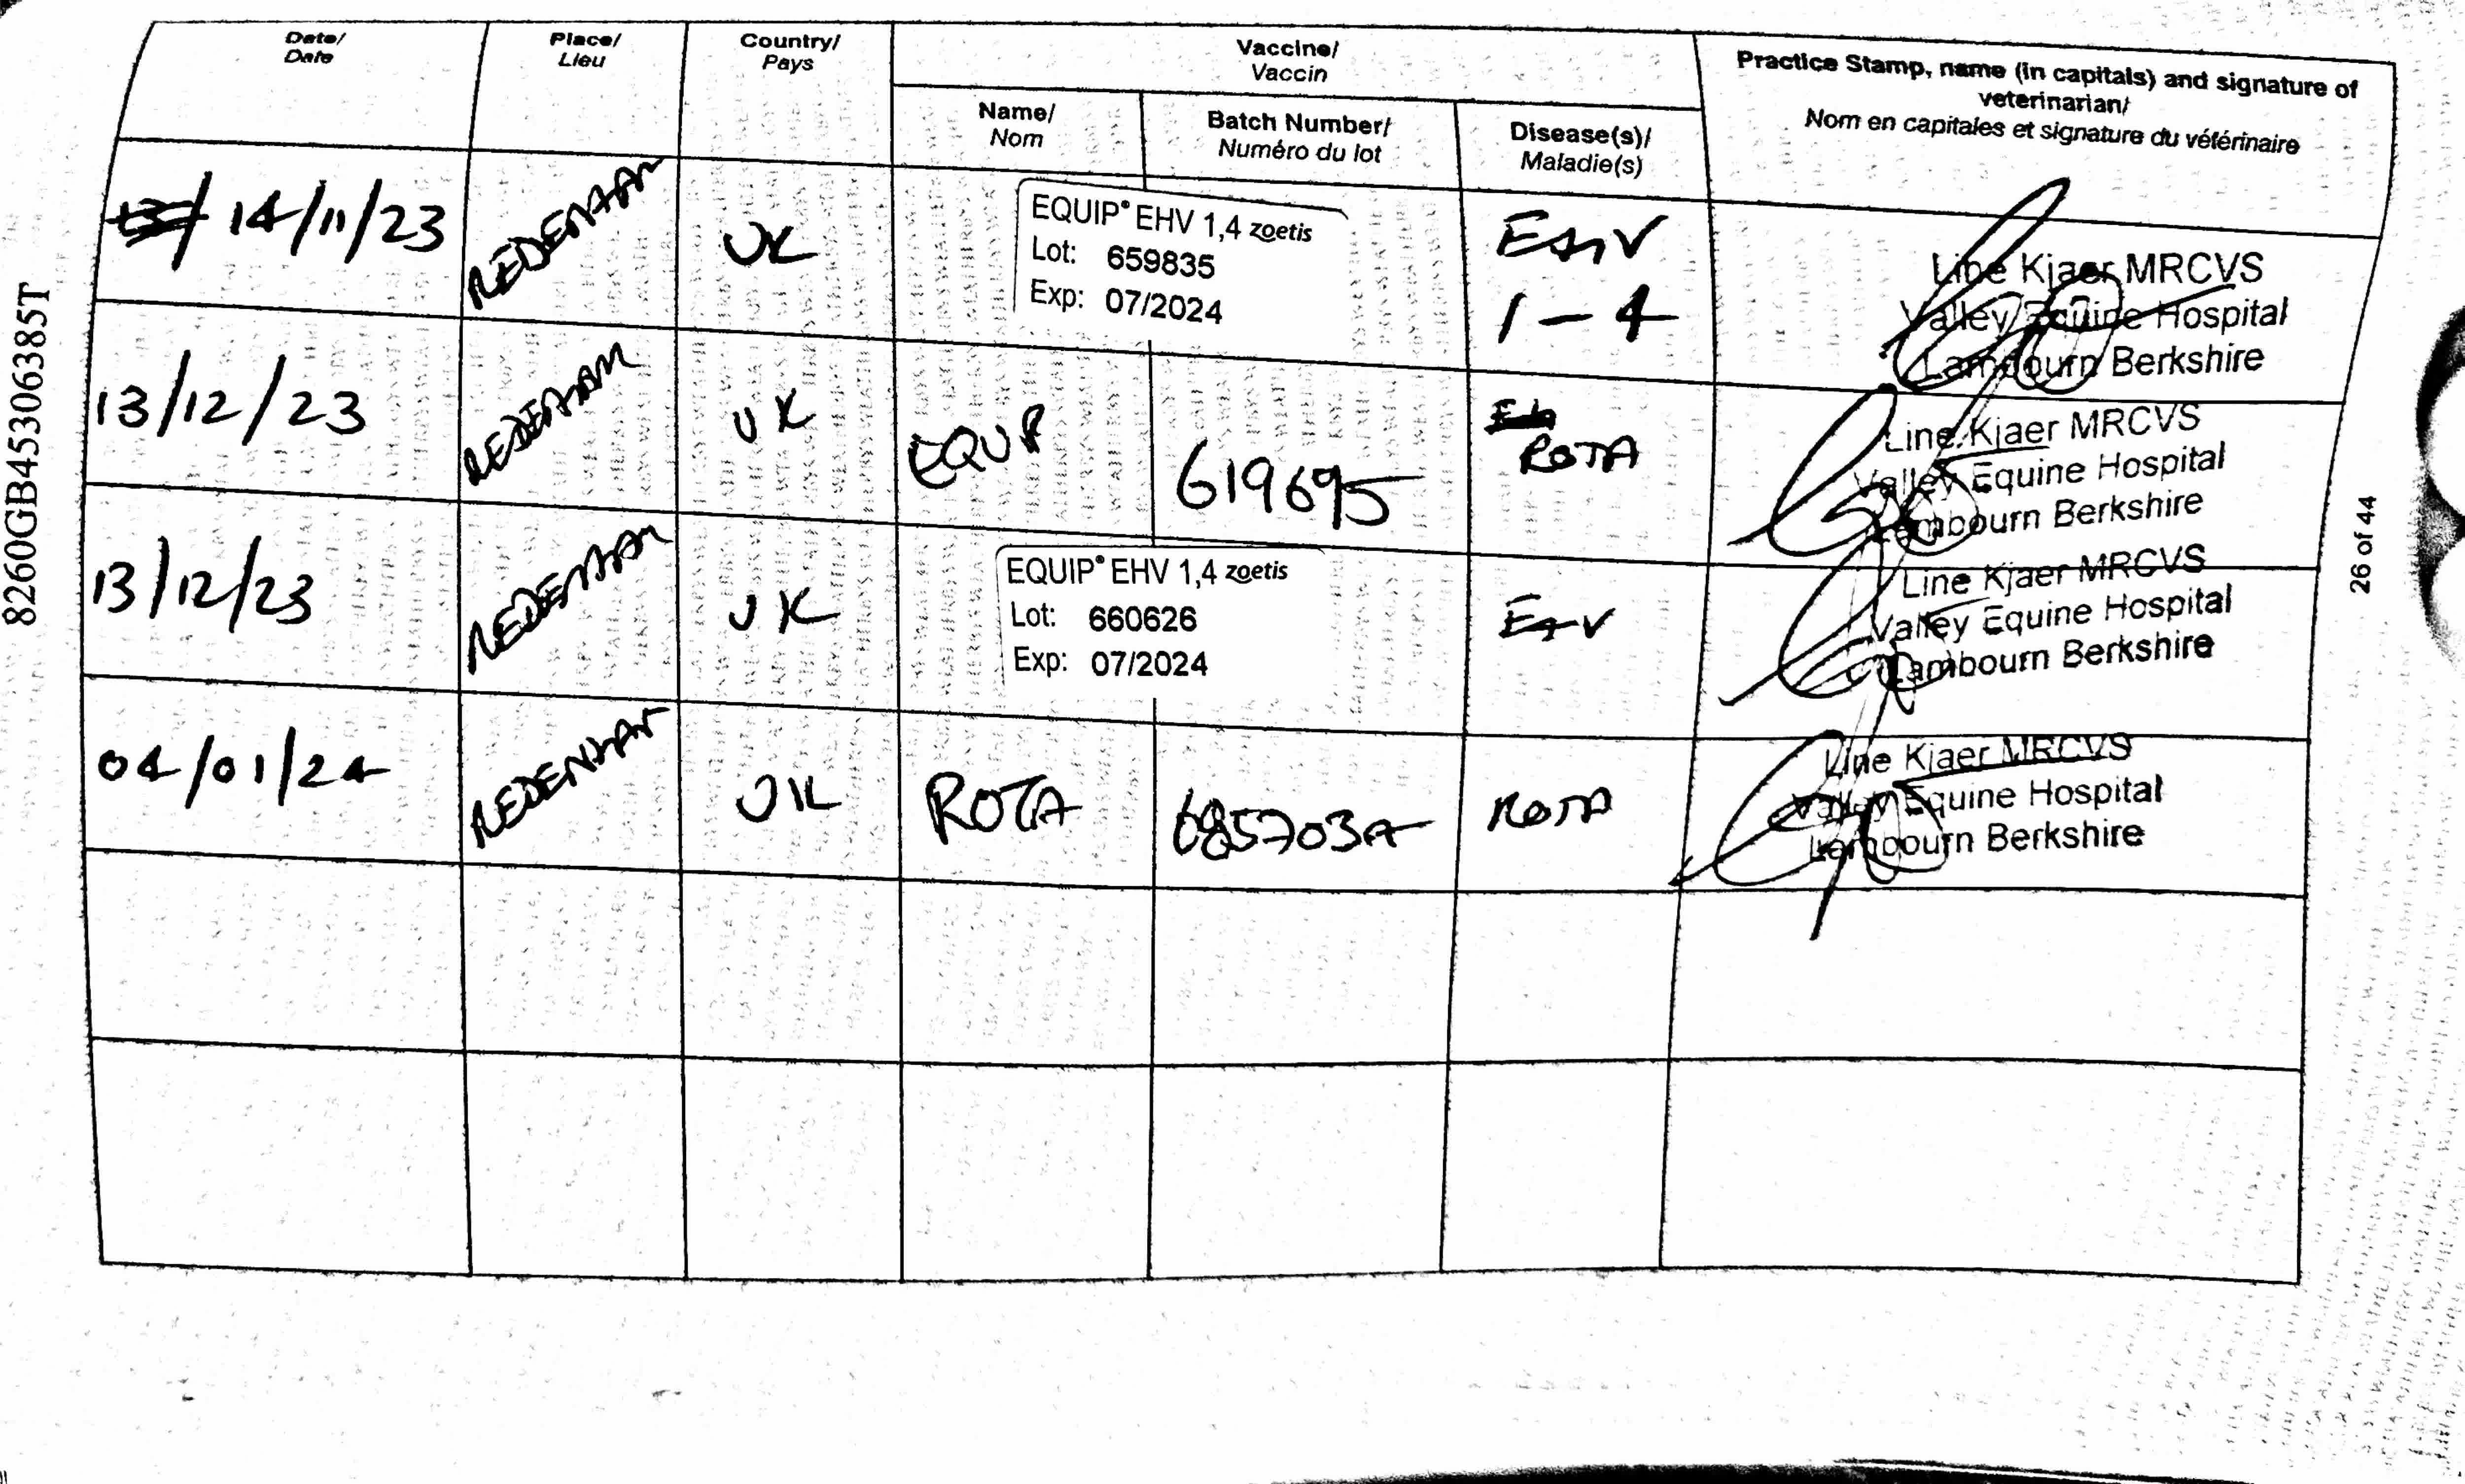 8260GB45306385T
Date/
Date
Place/
Lieu
Country/
Pays
Vaccine/
Vaccin
Name/
Nom
Batch Number/
Numéro du lot
Disease(s)/
Maladie(s)
Practice Stamp, name (in capitals) and signature of
veterinarian/
Nom en capitales et signature du vétérinaire
14/11/23
REDENHAM
UK
EQUIP® EHV 1,4 zoetis
Lot: 659835
Exp: 07/2024
EHV
1-4
Line Kjaer MRCVS
Valley Equine Hospital
Lambourn Berkshire
13/12/23
REDENHAM
UK
EQUIP
619695
ROTA
Line Kjaer MRCVS
Valley Equine Hospital
Lambourn Berkshire
13/12/23
REDENHAM
UK
EQUIP® EHV 1,4 zoetis
Lot: 660626
Exp: 07/2024
EHV
Line Kjaer MRCVS
Valley Equine Hospital
Lambourn Berkshire
04/01/24
REDENHAM
UK
ROTA
685703A
ROTA
Line Kjaer MRCVS
Valley Equine Hospital
Lambourn Berkshire
26 of 44